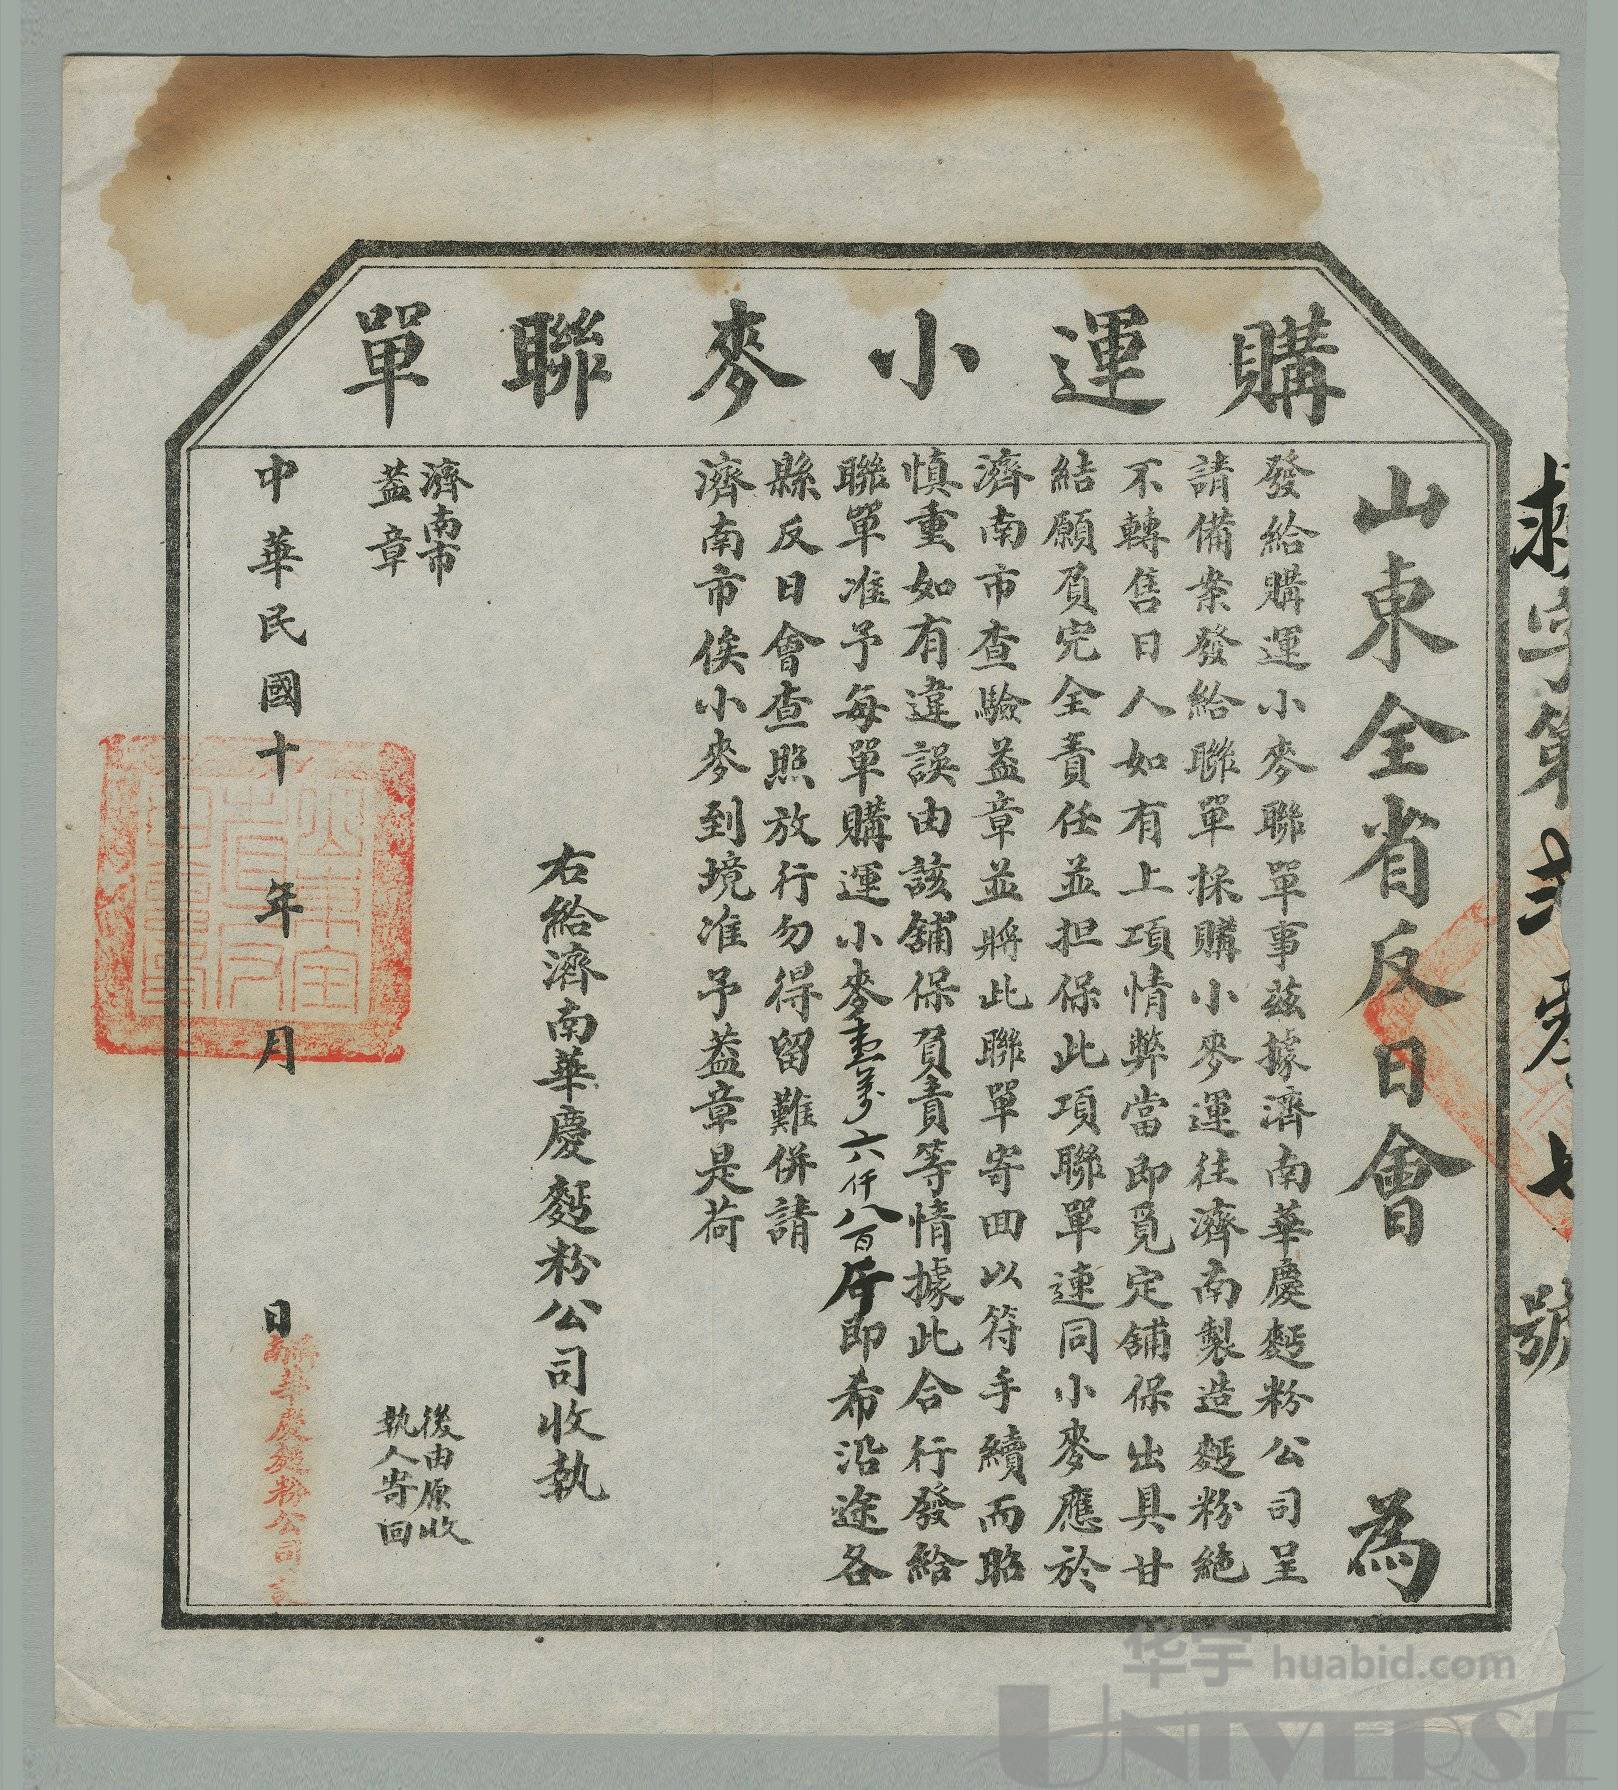 購運小麥聯單
山東全省反日會為
發給購運小麥聯單事茲據濟南華慶麪粉公司呈
請備案發給聯單採購小麥運往濟南製造麪粉絶
不轉售日人如有上項情弊當即覓定舖保出具甘
結願負完全責任並担保此項聯單速同小麥應於
濟南市查驗蓋章並將此聯單寄回以符手續而昭
慎重如有違誤由該舖保負責等情據此合行發給
聯單准予每單購運小麥壹萬六仟八百斤即希沿途各
縣反日會查照放行勿得留難併請
濟南市俟小麥到境准予蓋章是荷
右給濟南華慶麪粉公司收執
濟南市
蓋章
後由原收
執人寄回
中華民國十年月日
濟南華慶麪粉公司
字第貳零七號
华宇 huabid.com
UNIVERSE